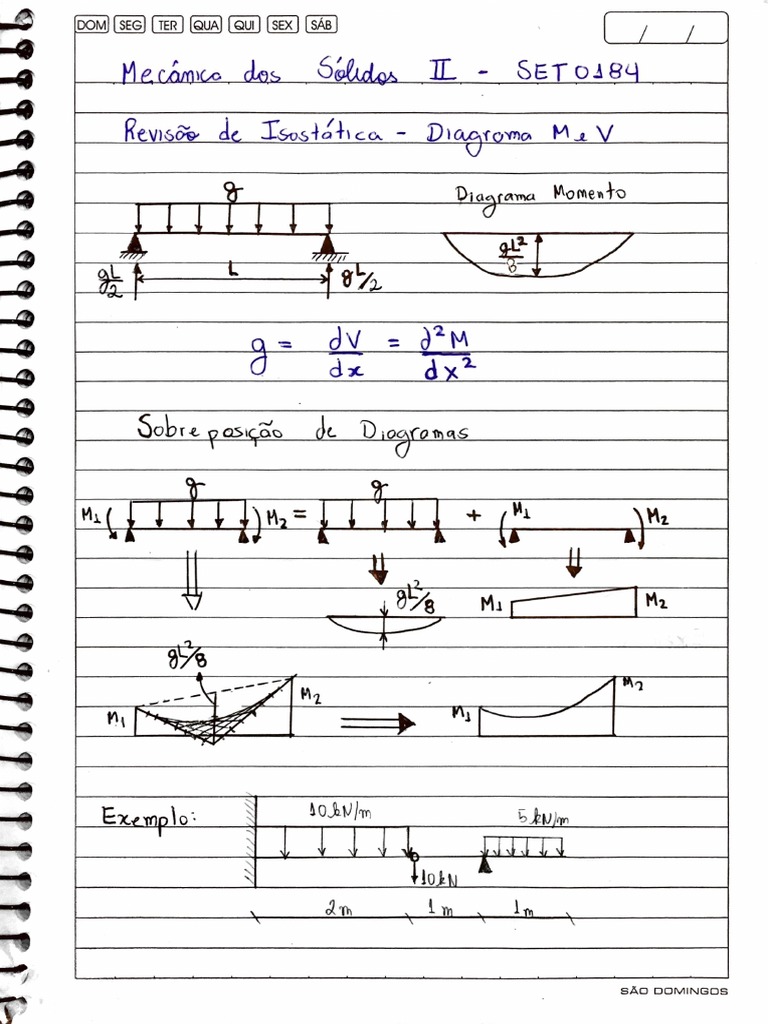 DOM SEG TER QUA QUI SEX SÁB
/ /
Mecânica dos Sólidos II - SET0184
Revisão de Isostática - Diagrama M e V
g
Diagrama Momento
gL/2
L
gL/2
gL²/8
g = dV/dx = d²M/dx²
Sobreposição de Diagramas
M1 g M2 = g + M1 M2
gL²/8
M1 M2
gL²/8
M1 M2
M1 M2
Exemplo:
10kN/m
5kN/m
10kN
2m 1m 1m
SÃO DOMINGOS